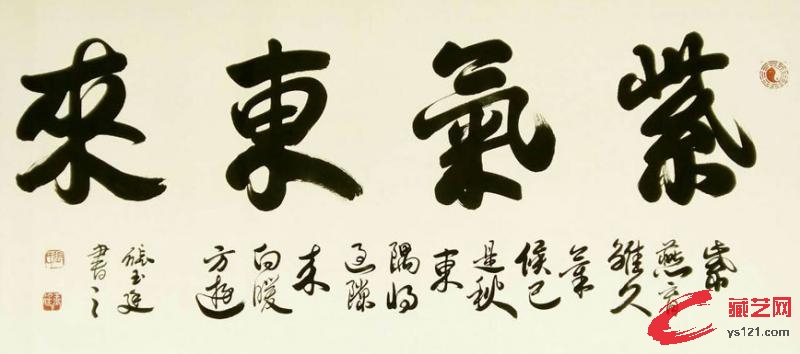 紫氣東來
紫
燕音
雖久
氣
候已
是秋
東
隅将
過隙
来
向暖
方遊
張玉廷
書之
藏艺网
ys121.com